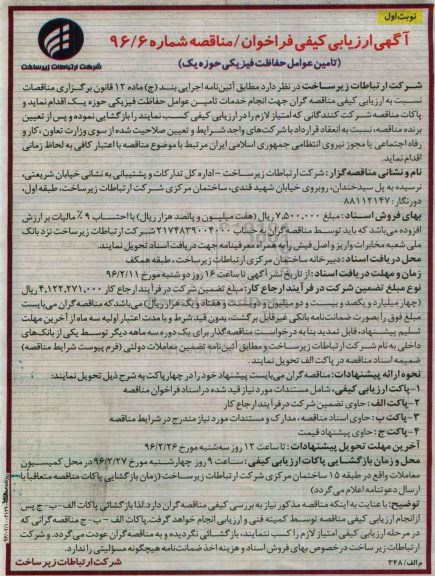 نوبت اول
آگهی ارزیابی کیفی فراخوان /مناقصه شماره ۹۶/۶
(تامین عوامل حفاظت فیزیکی حوزه یک)
شرکت ارتباطات زیرساخت
شرکت ارتباطات زیرساخت در نظر دارد مطابق آئین‌نامه اجرایی بند (ج) ماده ۱۲ قانون برگزاری مناقصات
نسبت به ارزیابی کیفی مناقصه گران جهت انجام خدمات تامین عوامل حفاظت فیزیکی حوزه یک اقدام نماید و
پاکات مناقصه شرکت کنندگانی که امتیاز لازم را در ارزیابی کیفی کسب نمایند را بازگشایی نموده و پس از تعیین
برنده مناقصه، نسبت به انعقاد قرارداد با شرکت‌های واجد شرایط و تعیین صلاحیت شده از سوی وزارت تعاون، کار و
رفاه اجتماعی یا مجوز نیروی انتظامی جمهوری اسلامی ایران مرتبط با موضوع مناقصه با اعتبار کافی به لحاظ زمانی
اقدام نماید.
نام و نشانی مناقصه‌گزار: شرکت ارتباطات زیرساخت - اداره کل تدارکات و پشتیبانی به نشانی خیابان شریعتی،
نرسیده به پل سیدخندان، روبروی خیابان شهید قندی، ساختمان مرکزی شرکت ارتباطات زیرساخت، طبقه اول،
دورنگار: ۸۸۱۱۲۱۴۷
بهای فروش اسناد: مبلغ ۷,۵۰۰,۰۰۰ ریال (هفت میلیون و پانصد هزار ریال) با احتساب ۹٪ مالیات بر ارزش
افزوده می‌باشد که باید توسط مناقصه گران به حساب ۲۱۷۴۸۳۹۰۰۴۰۰۰ شرکت ارتباطات زیرساخت نزد بانک
ملی شعبه مخابرات واریز و اصل فیش را به همراه معرفینامه جهت دریافت اسناد تحویل نمایند.
محل دریافت اسناد: دبیرخانه ساختمان مرکزی ارتباطات زیرساخت، طبقه همکف
زمان و مهلت دریافت اسناد: از تاریخ نشر آگهی تا ساعت ۱۶ روز دو شنبه مورخ ۹۶/۲/۱۱
نوع مبلغ تضمین شرکت در فرآیند ارجاع کار: مبلغ تضمین شرکت در فرآیند ارجاع کار ۴,۱۲۲,۲۷۱,۰۰۰ ریال
(چهار میلیارد و یکصد و بیست و دو میلیون و دویست و هفتاد و یک هزار ریال) می‌باشد که مناقصه گران می‌بایست
مبلغ فوق را بصورت ضمانت‌نامه بانکی غیرقابل برگشت، بدون قید شرط و با مدت اعتبار اولیه سه ماه از آخرین مهلت
تسلیم پیشنهاد، قابل تمدید بنا به درخواست مناقصه گذار برای یک دوره سه ماهه دیگر توسط یکی از بانک‌های
داخلی به نام شرکت ارتباطات زیرساخت و مطابق آئین‌نامه تضمین معاملات دولتی (فرم پیوست شرایط مناقصه)
ضمیمه اسناد مناقصه در پاکت الف تحویل نمایند.
نحوه ارائه پیشنهادات: مناقصه گران می‌بایست پیشنهاد خود را در چهار پاکت به شرح ذیل تحویل نمایند:
۱- پاکت ارزیابی کیفی، شامل مستندات مورد نیاز قید شده در اسناد فراخوان مناقصه
۲- پاکت الف: حاوی تضمین شرکت در فرآیند ارجاع کار
۳- پاکت ب: حاوی اسناد مناقصه، مدارک و مستندات مورد نیاز مندرج در شرایط مناقصه
۴- پاکت ج: حاوی پیشنهاد قیمت
آخرین مهلت تحویل پیشنهادات: تا ساعت ۱۲ روز سه‌شنبه مورخ ۹۶/۲/۲۶
محل و زمان بازگشایی پاکات ارزیابی کیفی: ساعت ۹ روز چهارشنبه مورخ ۹۶/۲/۲۷ در محل کمیسیون
معاملات واقع در طبقه ۱۵ ساختمان مرکزی شرکت ارتباطات زیرساخت (زمان بازگشایی پاکات مناقصه متعاقبا با
ارسال دعوتنامه اعلام می‌گردد)
توضیح: با عنایت به اینکه مناقصه مذکور نیاز به بررسی کیفی مناقصه گران دارد، لذا بازگشائی پاکات الف-ب-ج پس
از انجام ارزیابی کیفی مناقصه توسط کمیته فنی و ارزیابی انجام خواهد گرفت. پاکات الف - ب - ج مناقصه گرانی که
در مرحله ارزیابی کیفی امتیاز لازم را کسب ننمایند، بازگشائی نگردیده و به مناقصه گران عودت می‌گردد. و شرکت
ارتباطات زیر ساخت در خصوص بهای فروش اسناد و هزینه اخذ ضمانت‌نامه هیچگونه مسؤولیتی را ندارد.
م الف/ ۳۴۸
شرکت ارتباطات زیرساخت